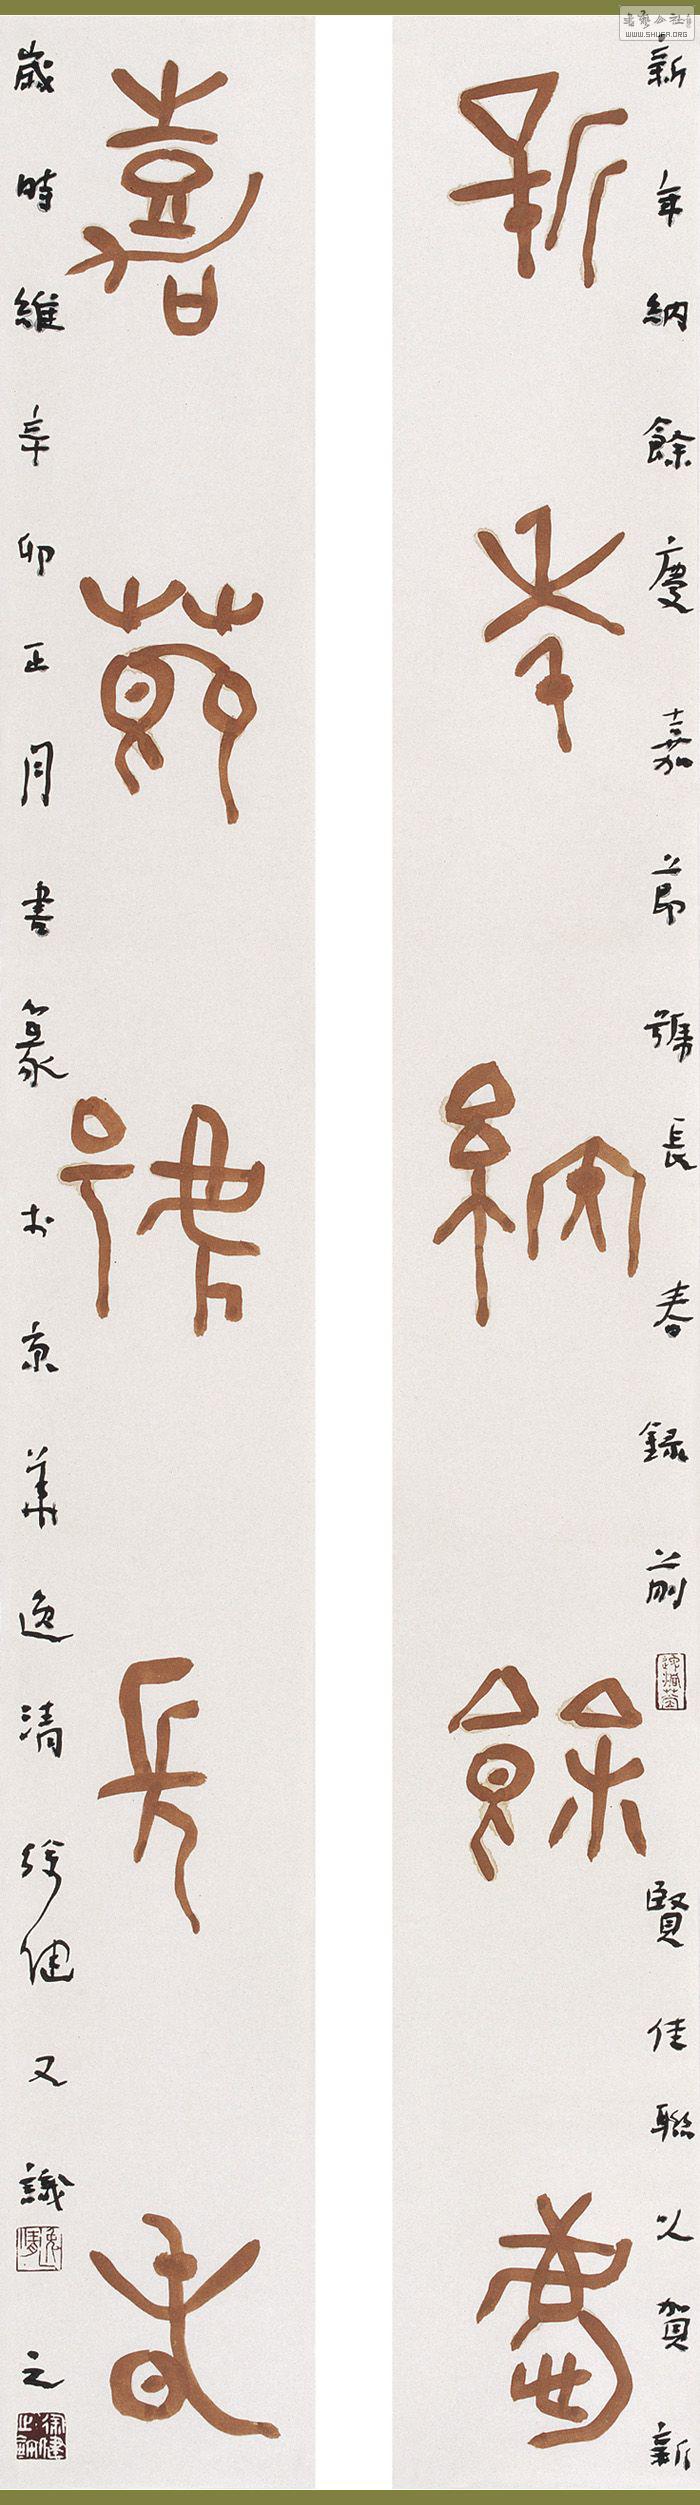 新年納餘慶嘉節號長春錄前賢佳聯以賀新
新年納餘慶
嘉節號長春
歲時維辛卯正月書篆於京華逸清徐健又識之
逸清
WWW.SHUFA.ORG